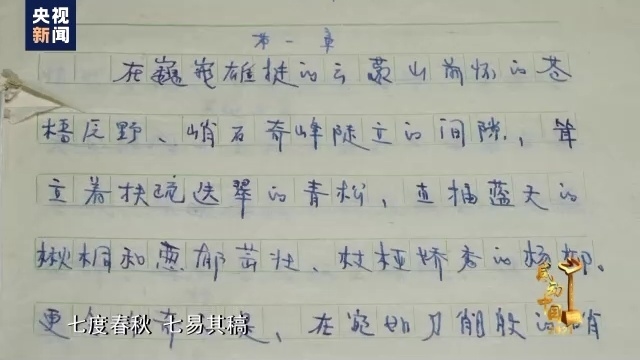 央视新闻
第一章
在巍峨雄挺的云蒙山前怀的苍
野、峭石奇峰陡立的间隙，耸
立着扶疏迭翠的青松，直插蓝天的
楸桐和葱郁茁壮、枝桠娇秀的杨
更 是，在宛如刀削般的峭
七度春秋 七易其稿